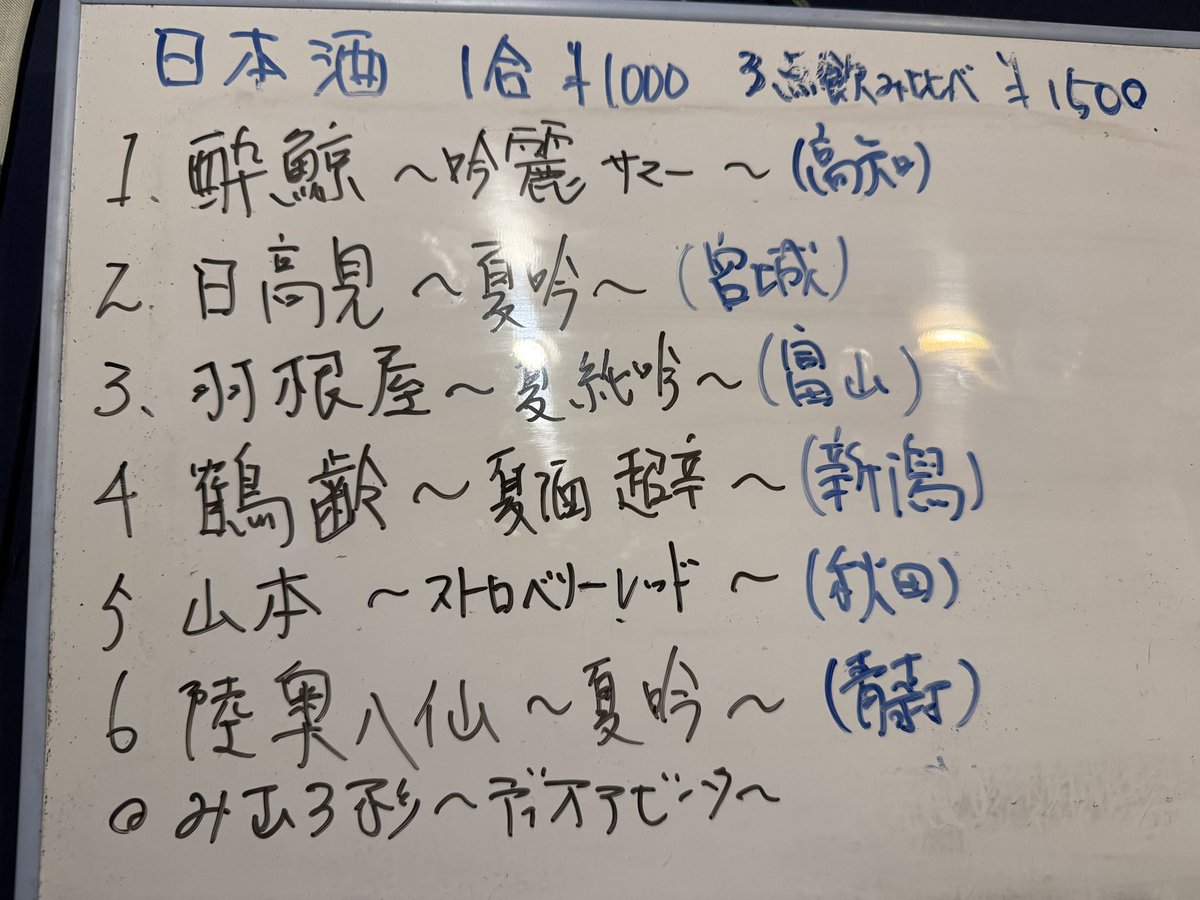 日本酒 1合 ¥1000 3点飲み比べ ¥1500
1. 酔鯨 ～吟麗 サマー～ (高知)
2. 日高見 ～夏吟～ (宮城)
3、羽根屋～夏純吟～(富山)
4 鶴齢～夏酒 超辛～(新潟)
5 山本 ～ストロベリーレッド～ (秋田)
6 陸奥八仙～夏吟～ (青森)
◎ みむろ杉～ディオアビータ～